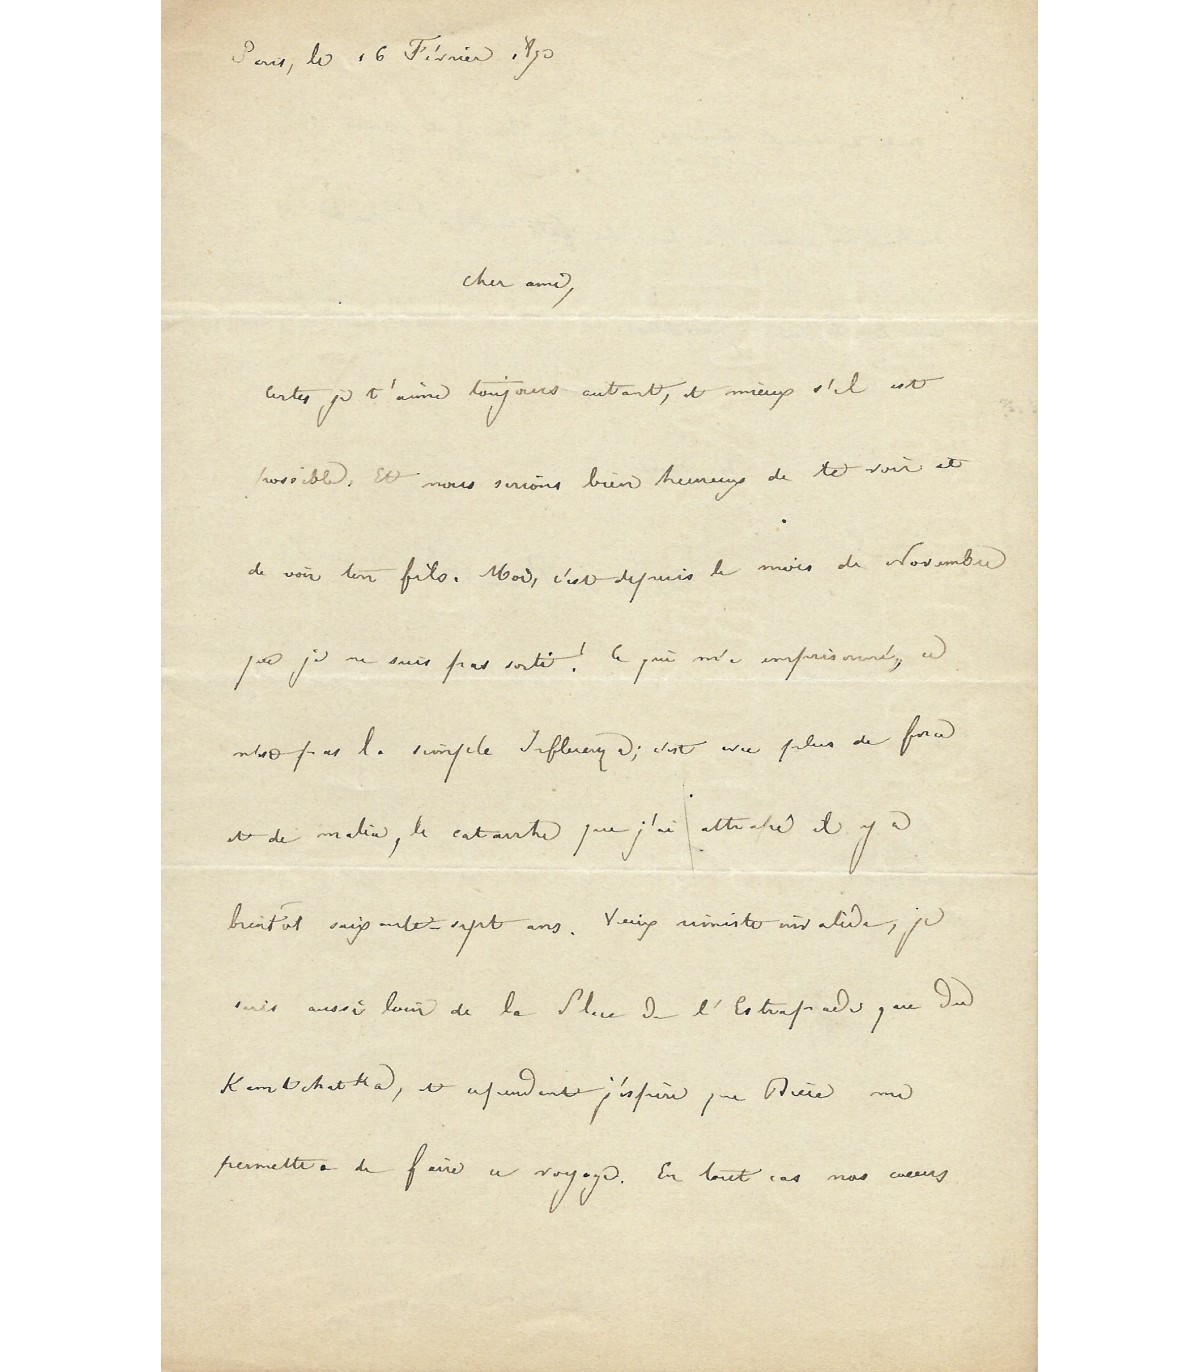 Paris, le 16 Février 1890
Cher ami,
Certes je t'aime toujours autant, et mieux s'il est
possible. Et nous serions bien heureux de te voir et
de voir ton fils. Moi, c'est depuis le mois de Novembre
que je ne suis pas sorti! Ce qui m'a emprisonné, ce
n'est pas la simple Influenza; c'est avec plus de force
et de malice, le catarrhe que j'ai attrapé il y a
bientôt soixante-sept ans. Vieux rimiste invalide, je
suis aussi loin de la Place de l'Estrapade que du
Kamtchatka, et cependant j'espère que Dieu me
permettra de faire ce voyage. En tout cas nos cœurs